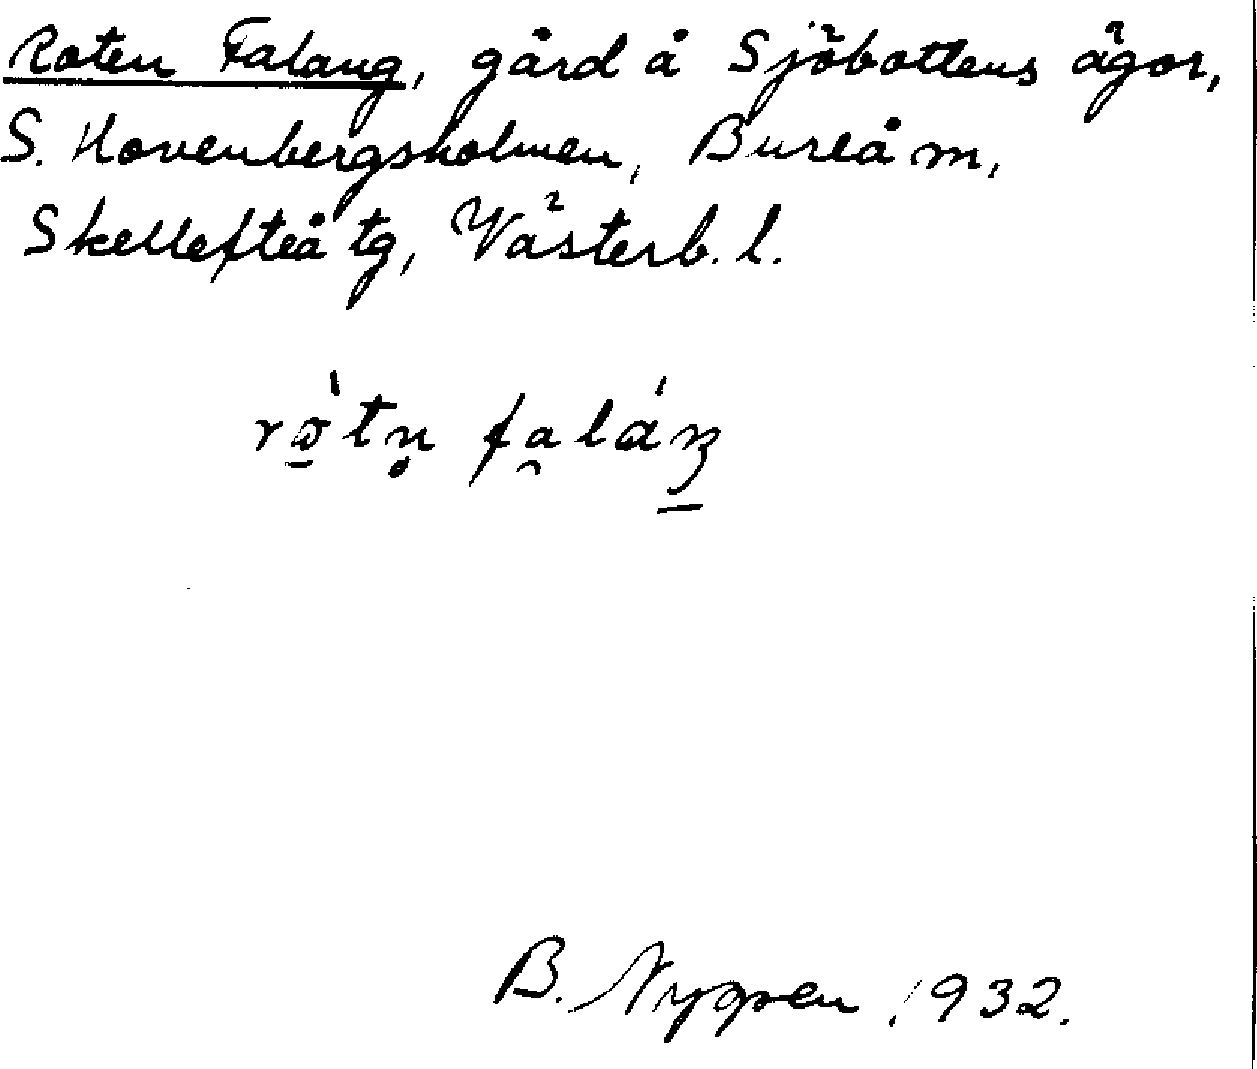 Roten Falang, gård å Sjöbottens ägor,
S. Hovenbergsholmen, Bureå m,
Skellefteå tg, Västerb. l.
B. Nygren 1932.